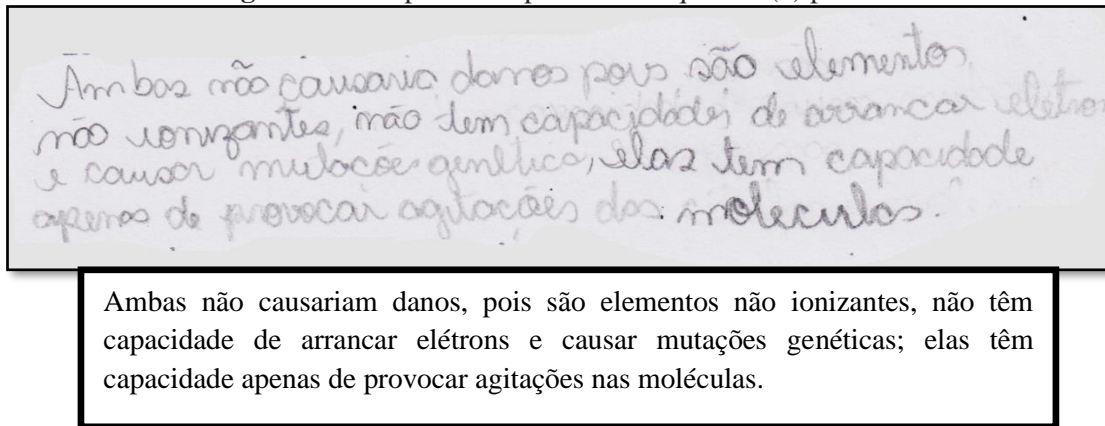 Ambas não causaria danos pois são elementos
não ionizantes, não tem capacidades de arrancar eletron
e causar mutacões genética, elas tem capacidade
apenas de provocar agitacões das moleculas.
Ambas não causariam danos, pois são elementos não ionizantes, não têm
capacidade de arrancar elétrons e causar mutações genéticas; elas têm
capacidade apenas de provocar agitações nas moléculas.